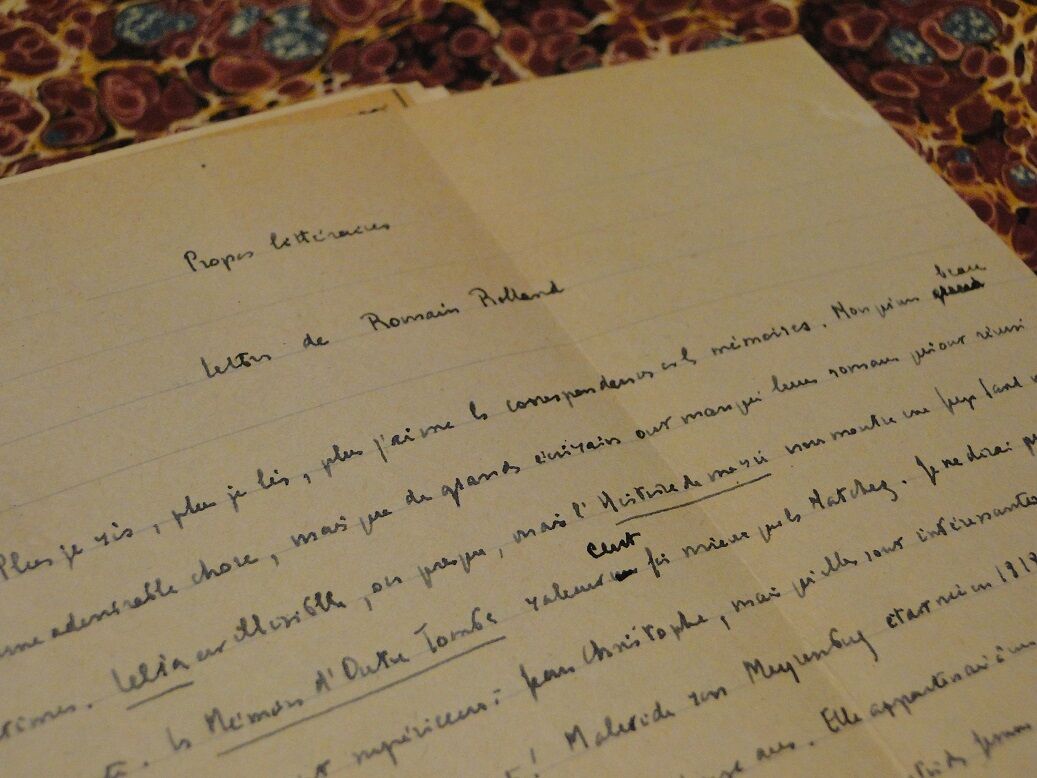 Propos littéraires
lettres de Romain Rolland
Plus je vis, plus je lis, plus j'aime les correspondances et les mémoires. Non qu'un beau
une admirable chose, mais que de grands écrivains ont manqué leurs romans qui ont réussi
Lélia est illisible, ou presque, mais l'Histoire de ma vie nous montre une
les Mémoires d'Outre Tombe valent cent fois mieux que les Natchez. Je ne dirai
supérieures à Jean Christophe, mais qu'elles sont intéressantes
! Malwida von Meysenbug était née en
ans. Elle appartenait à